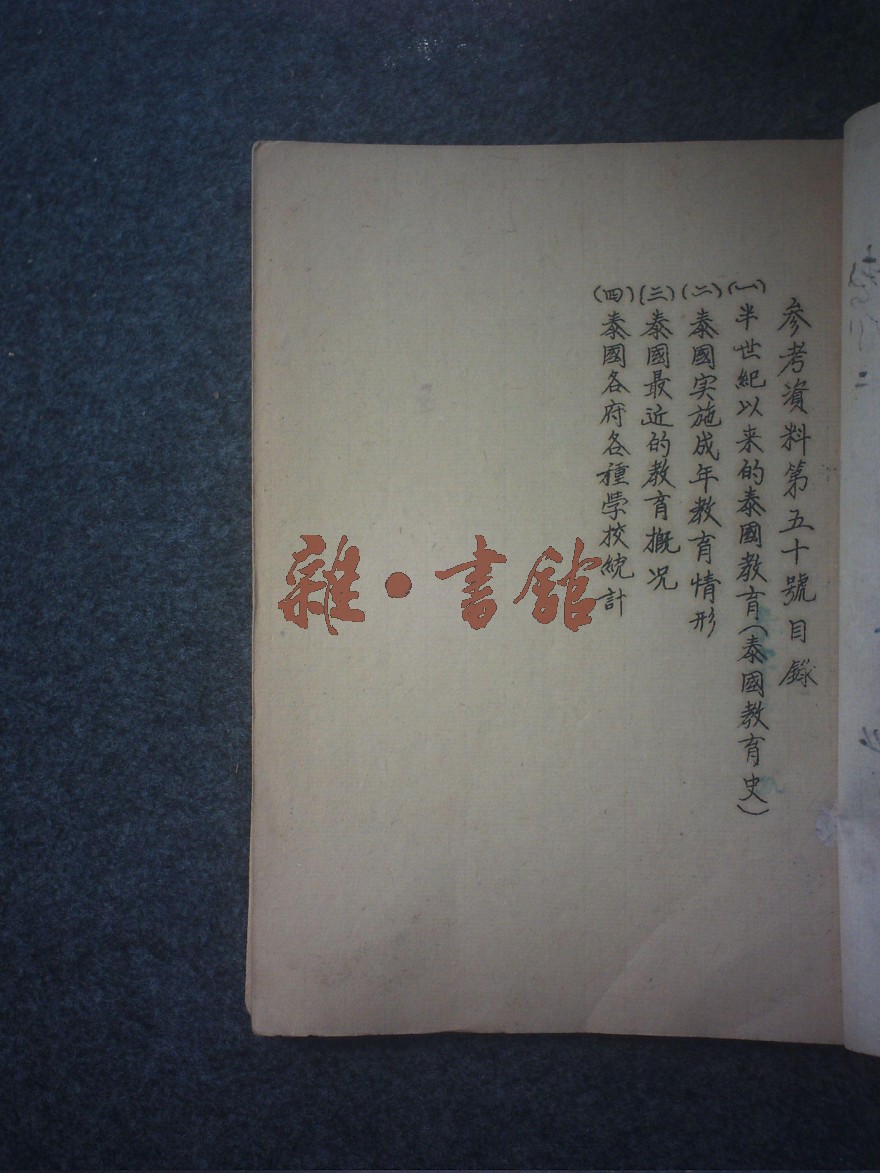 参考資料第五十號目錄
(一)半世紀以来的泰國教育(泰國教育史)
(二)泰國实施成年教育情形
(三)泰國最近的教育概况
(四)泰國各府各種學校統計
雜·書館